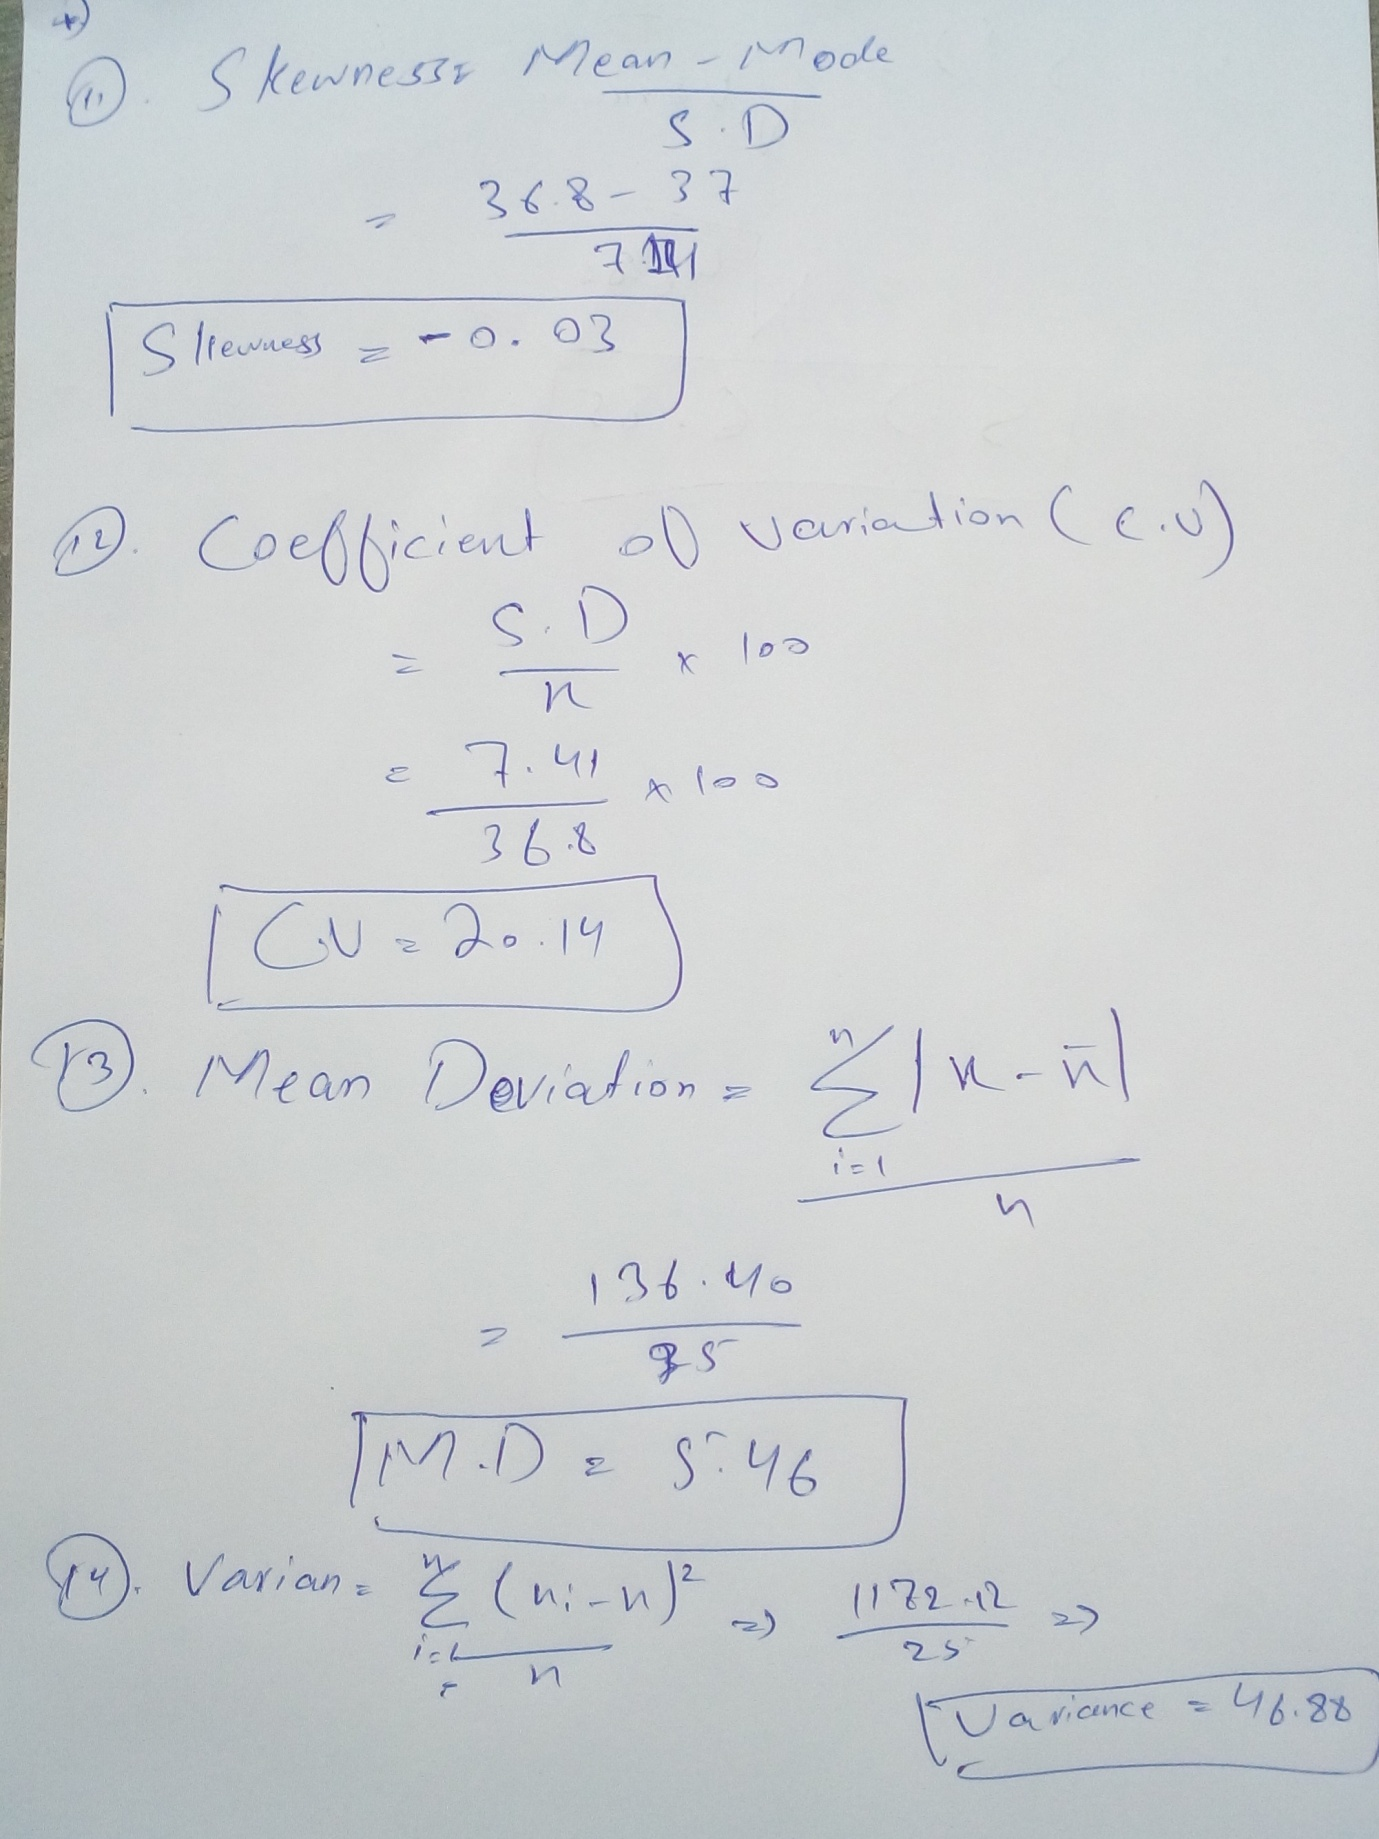 11. Skewness = Mean - Mode
S.D
= 36.8 - 37
7.41
Skewness = -0.03
12. Coefficient of variation (c.v)
= S.D
x
x 100
= 7.41
36.8
x 100
C.V = 20.14
13. Mean Deviation = n Σ i=1 |x - x̄|
n
= 136.40
25
M.D = 5.46
14. Varian = n Σ i=1 (xi - x)² => 1172.12 =>
n 25
Variance = 46.88